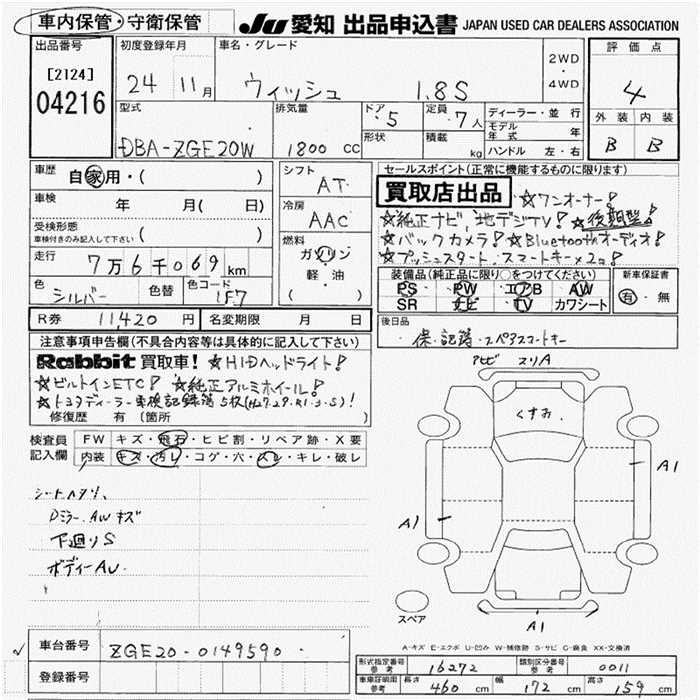 車内保管・守衛保管
JU 愛知 出品申込書 JAPAN USED CAR DEALERS ASSOCIATION
出品番号
[2124]
04216
初度登録年月
24 11月
車名・グレード
ウィッシュ 1.8S
2WD
・
4WD
評価点
4
外装 内装
B B
型式
DBA-ZGE20W
排気量
1800 CC
ドア
5
形状
定員
7人
積載
kg
ディーラー・並行
モデル年式 年
ハンドル 左・右
車歴
自家用・( )
車検
年 月( 日)
受検形態
車検付きのみ記入して下さい
( )
走行
7万6千069km
色
シルバー
色替
色コード
1F7
シフト
AT
冷房
AAC
燃料
ガソリン
軽・油
( )
セールスポイント(正常に機能するものに限ります)
買取店出品 ☆ワンオーナー!
☆純正ナビ,地デジTV! ☆後期型!
☆バックカメラ! ☆Bluetoothオーディオ!
☆プッシュスタート スマートキー×2コ!
装備品(純正品に限り○をつけてください)
PS PW エアB AW
SR ナビ TV カワシート
新車保証書
有・無
R券 11,420円
名変期限 月 日
後日品
保.記簿.スペアスマートキー
注意事項申告欄(不具合内容等は具体的に記入して下さい)
Rabbit 買取車! ☆HIDヘッドライト!
☆ビルトインETC! ☆純正アルミホイール!
☆トヨタディーラー車検記録簿5枚(H27.29.R1.3.5)!
修復歴 有(箇所 )
検査員
記入欄
FW キズ・飛石・ヒビ割・リペア跡・X要
内装 キズ・汚レ・コゲ・穴・スレ・キレ・破レ
シートヘタリ、
Dミラー.AWキズ
下廻りS
ボディーAU
アヒビ スリA
くすみ
A1
A1
A1
スペア
A-キズ E-エクボ U-凹み W-補修跡 S-サビ C-腐食 XX-交換済
車台番号 ZGE20-0149590
登録番号
形式指定番号 参考 16272
類別区分番号 参考 0011
車庫証明用 参考
長さ 460 cm
幅 172 cm
高さ 159 cm